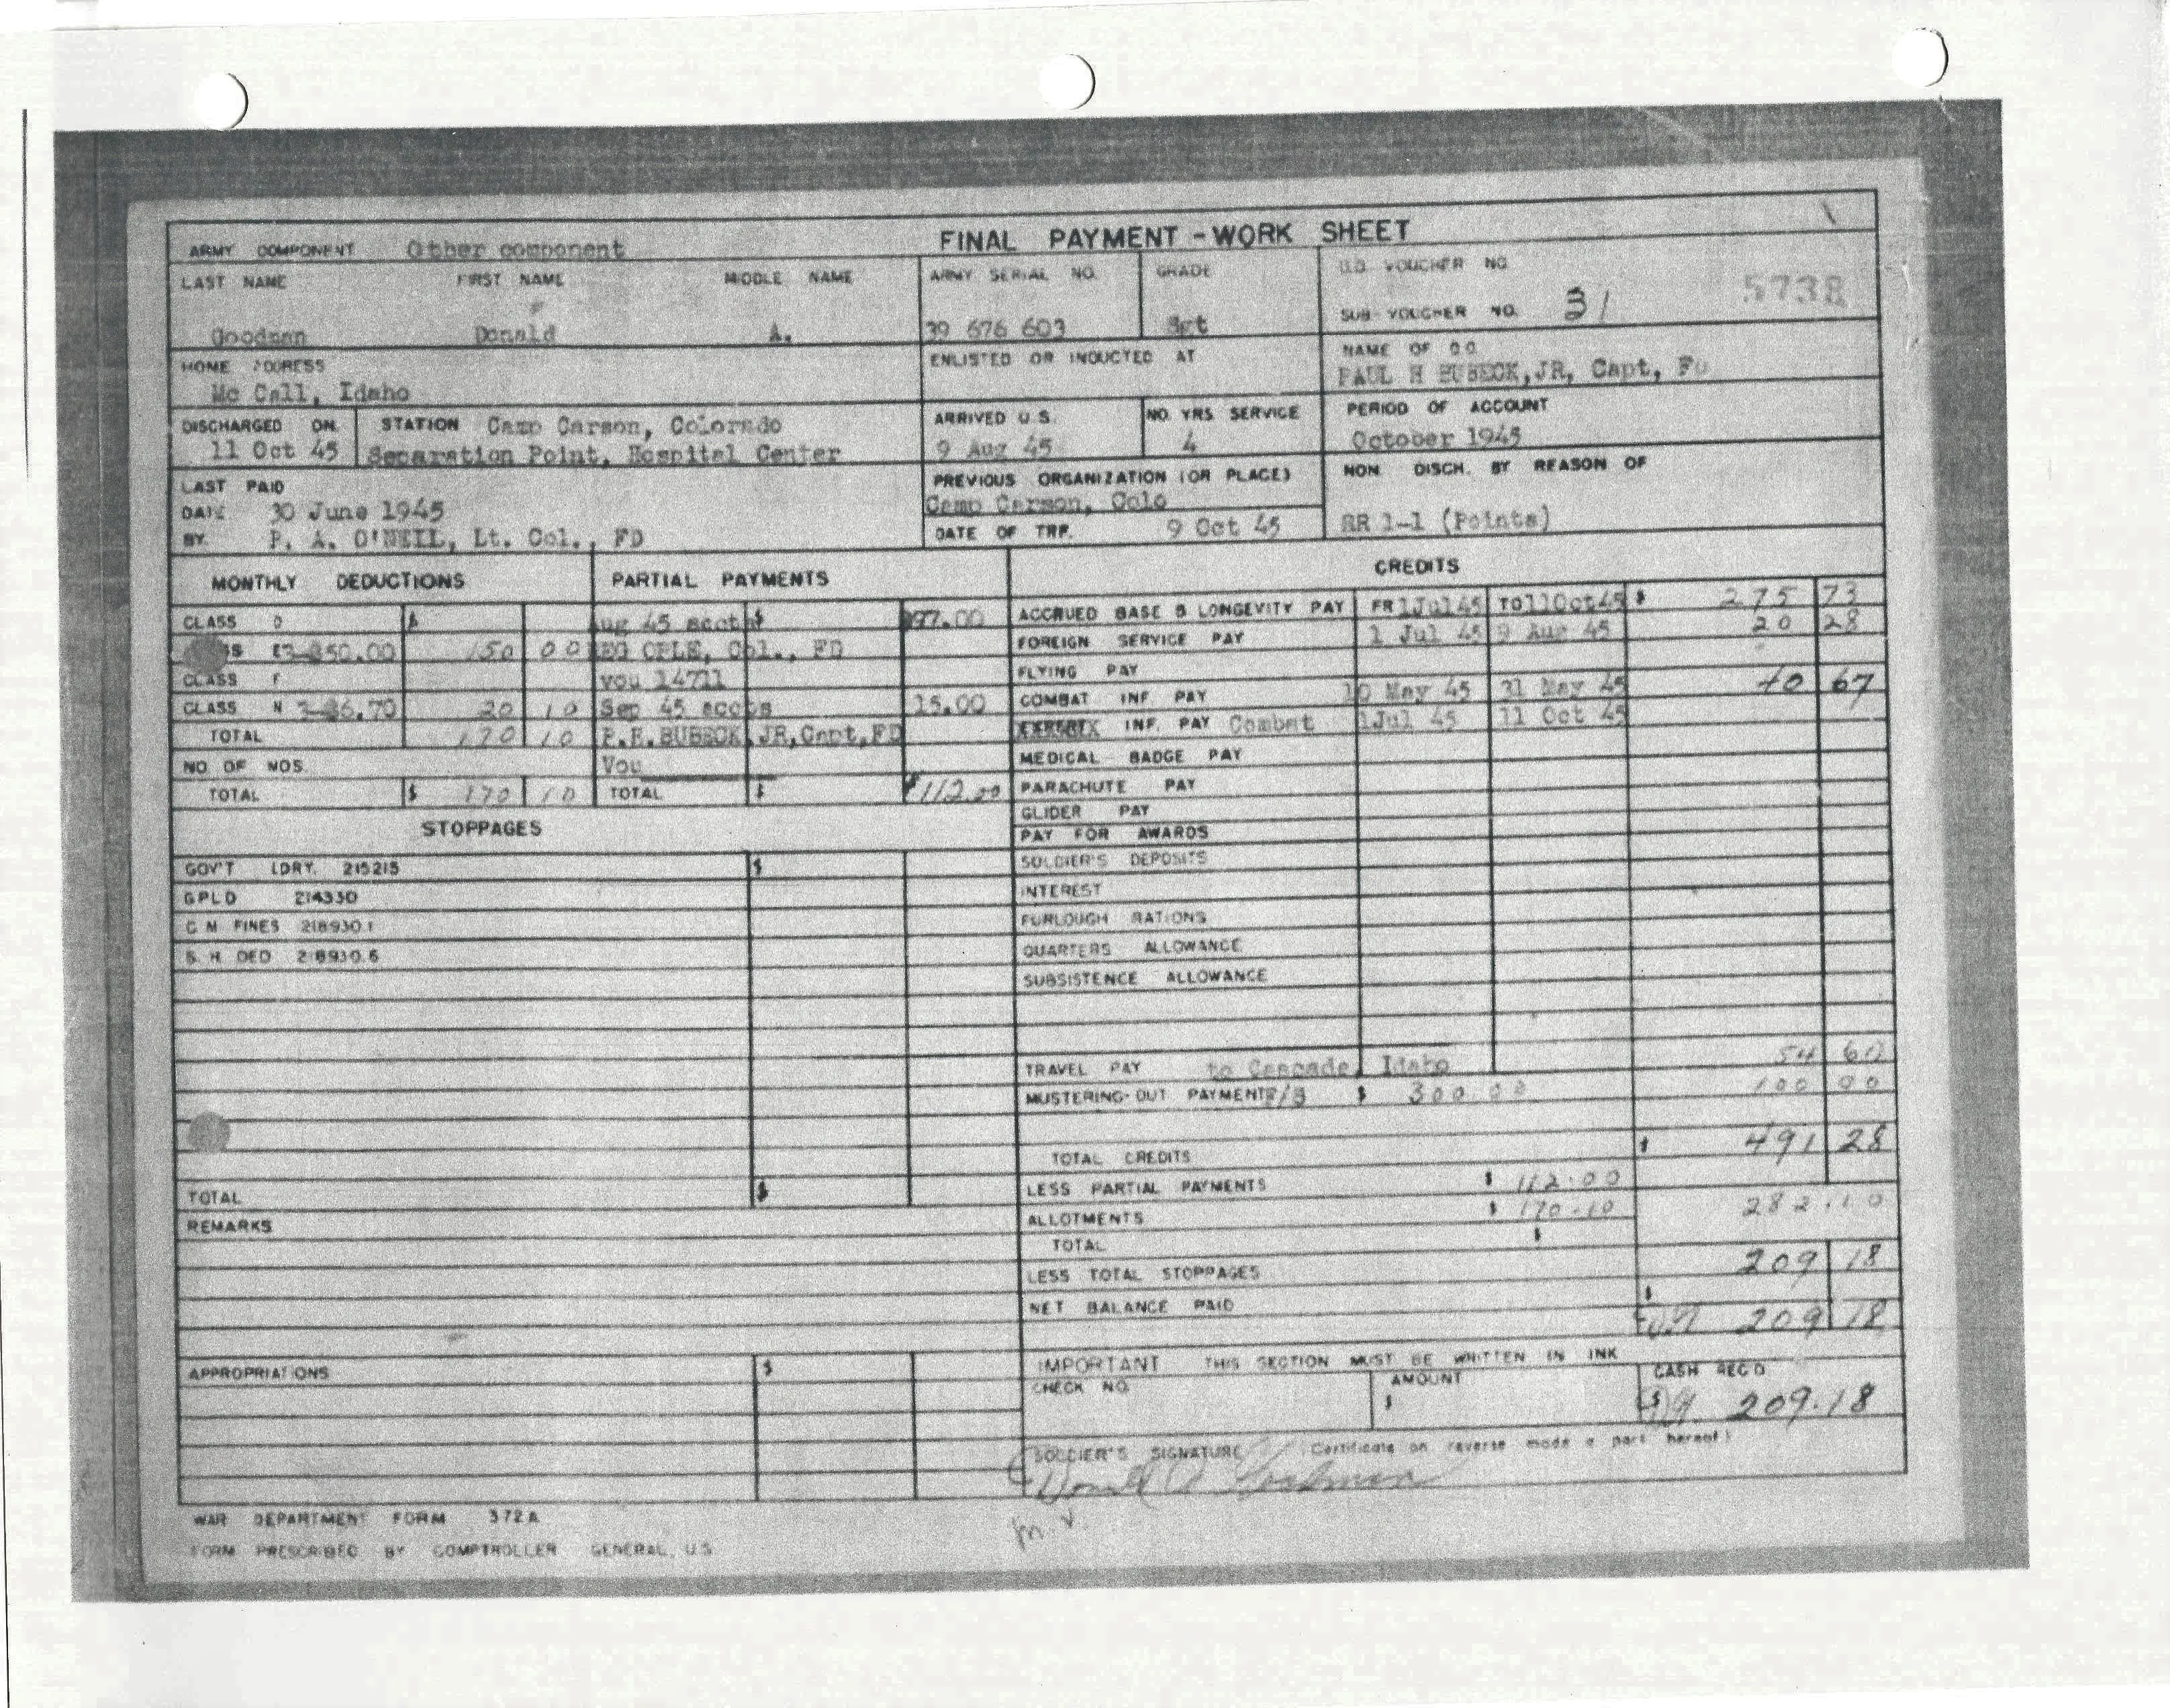 FINAL PAYMENT - WORK SHEET
ARMY COMPONENT Other component
LAST NAME FIRST NAME MIDDLE NAME
Goodman Donald A.
ARMY SERIAL NO.
39 676 603
GRADE
Sgt
D.O. VOUCHER NO.
5738
SUB-VOUCHER NO. 31
HOME ADDRESS
Mc Call, Idaho
ENLISTED OR INDUCTED AT
NAME OF D.O.
PAUL H BUBECK,JR, Capt, FD
DISCHARGED ON.
11 Oct 45
STATION Camp Carson, Colorado
Separation Point, Hospital Center
ARRIVED U.S.
9 Aug 45
NO. YRS SERVICE
4
PERIOD OF ACCOUNT
October 1945
LAST PAID
DATE 30 June 1945
BY. P. A. O'NEIL, Lt. Col., FD
PREVIOUS ORGANIZATION (OR PLACE)
Camp Carson, Colo
DATE OF TRF. 9 Oct 45
NON. DISCH. BY REASON OF
RR 1-1 (Points)
MONTHLY DEDUCTIONS
CLASS D $
3-$50.00 150 00
CLASS F
CLASS N 3-$6.70 20 10
TOTAL 170 10
NO OF MOS.
TOTAL $ 170 10
PARTIAL PAYMENTS
Aug 45 accts $ $97.00
CPLE, Col., FD
vou 14711
Sep 45 accts 15.00
P.H.BUBECK,JR,Capt,FD
Vou
TOTAL $ $112.00
STOPPAGES
GOV'T LDRY. 215215 $
GPLD 214330
C M FINES 218930.1
S. H. DED 218930.6
TOTAL $
REMARKS
APPROPRIATIONS $
CREDITS
ACCRUED BASE & LONGEVITY PAY FR 1Jul45 TO 11Oct45 $ 275 73
FOREIGN SERVICE PAY 1 Jul 45 9 Aug 45 20 28
FLYING PAY
COMBAT INF. PAY 10 May 45 31 May 45 40 67
INF. PAY Combat 1Jul 45 11 Oct 45
MEDICAL BADGE PAY
PARACHUTE PAY
GLIDER PAY
PAY FOR AWARDS
SOLDIER'S DEPOSITS
INTEREST
FURLOUGH RATIONS
QUARTERS ALLOWANCE
SUBSISTENCE ALLOWANCE
TRAVEL PAY to Cascade, Idaho 54 60
MUSTERING-OUT PAYMENT F/S $ 300.00 100 00
TOTAL CREDITS $ 491 28
LESS PARTIAL PAYMENTS $ 112.00
ALLOTMENTS $ 170.10 282.10
TOTAL $ 209 18
LESS TOTAL STOPPAGES $
NET BALANCE PAID 209 18
IMPORTANT THIS SECTION MUST BE WRITTEN IN INK
CHECK NO.
AMOUNT
$
CASH REC'D
$ 209.18
SOLDIER'S SIGNATURE (Certificate on reverse made a part hereof)
Donald A Goodman
WAR DEPARTMENT FORM 372A
FORM PRESCRIBED BY COMPTROLLER GENERAL, U.S.